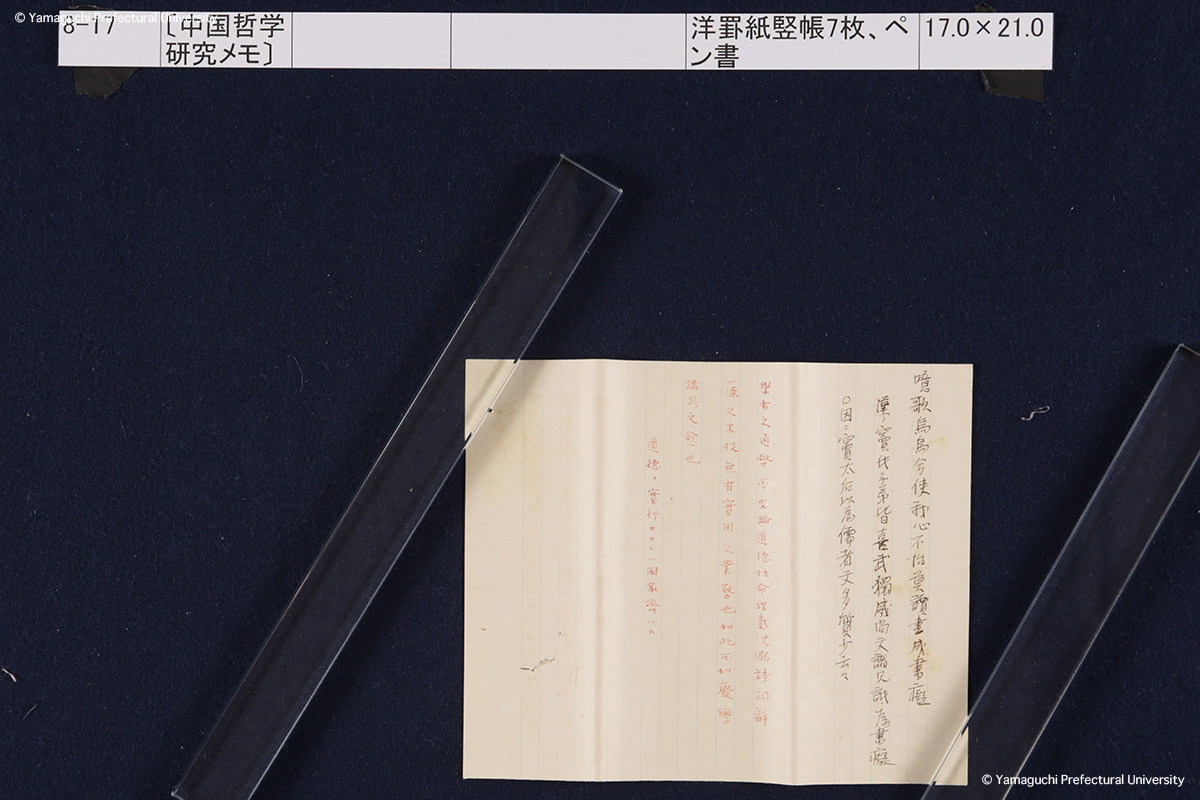 © Yamaguchi Prefectural University
8-17
〔中国哲学
研究メモ〕
洋罫紙竪帳7枚、ペ
ン書
17.0×21.0
噫歌烏烏令使我心不怡莫讀書成書癡
漢ノ竇氏子弟皆喜武獨威尚文諸兄譏為書癡
〇因ニ竇太后以為儒者文多質少云々
學者之通弊空論道德性命理氣沈溺詩詞辭
藻之末技無有實用之業啓也如此不如廢學
講武之愈也
道德ノ實行セザレハ國家齊ハス
© Yamaguchi Prefectural University